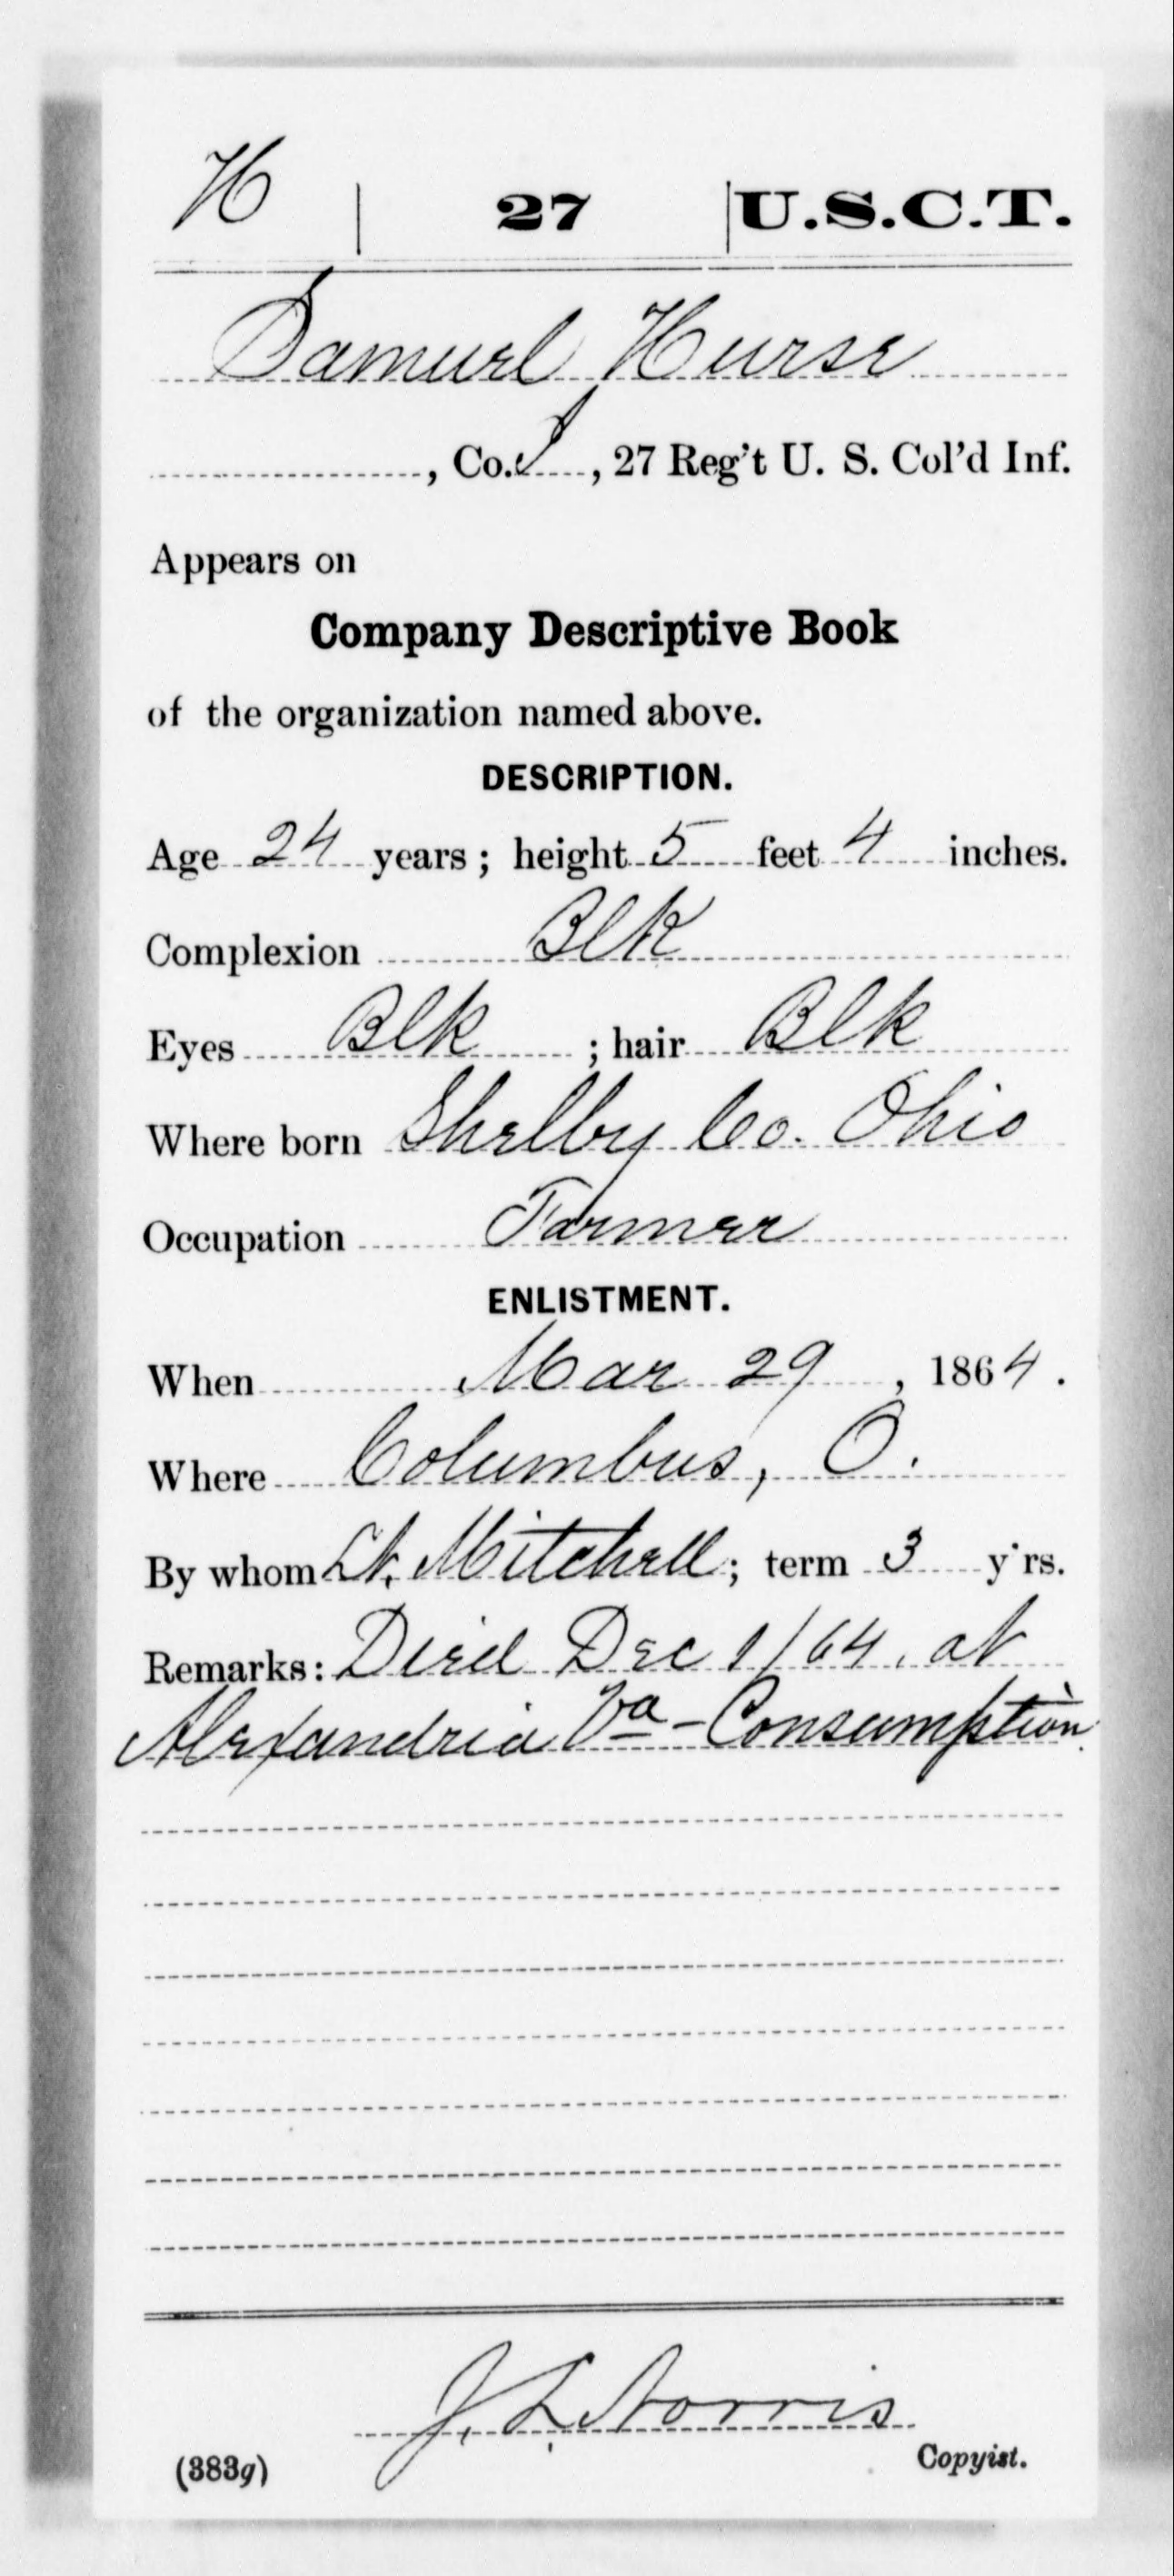 H | 27 | U.S.C.T.
Samuel Hurse
, Co. I, 27 Reg't U. S. Col'd Inf.
Appears on
Company Descriptive Book
of the organization named above.
DESCRIPTION.
Age 24 years; height 5 feet 4 inches.
Complexion Blk
Eyes Blk ; hair Blk
Where born Shelby Co. Ohio
Occupation Farmer
ENLISTMENT.
When Mar 29, 1864.
Where Columbus, O.
By whom Lt. Mitchell; term 3 y'rs.
Remarks: Died Dec 1/64, at
Alexandria Va - Consumption.
J. L. Norris
(383g) Copyist.